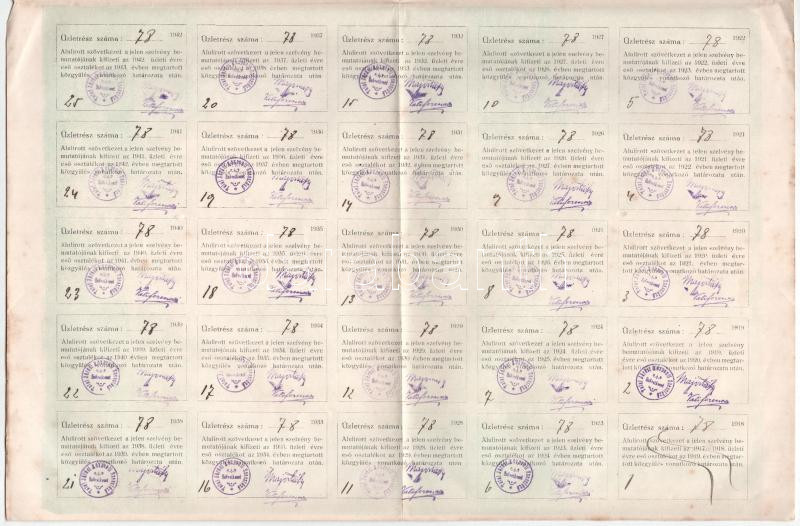 Üzletrész száma: 78 1942
Alulirott szövetkezet a jelen szelvény be-
mutatójának kifizeti az 1942. üzleti évre
eső osztalékot az 1943. évben megtartott
közgyülés vonatkozó határozata után.
25
Üzletrész száma: 78 1937
Alulirott szövetkezet a jelen szelvény be-
mutatójának kifizeti az 1937. üzleti évre
eső osztalékot az 1938. évben megtartott
közgyülés vonatkozó határozata után.
20
Üzletrész száma: 78 1932
Alulirott szövetkezet a jelen szelvény be-
mutatójának kifizeti az 1932. üzleti évre
eső osztalékot az 1933. évben megtartott
közgyülés vonatkozó határozata után.
15
Üzletrész száma: 78 1927
Alulirott szövetkezet a jelen szelvény be-
mutatójának kifizeti az 1927. üzleti évre
eső osztalékot az 1928. évben megtartott
közgyülés vonatkozó határozata után.
10
Üzletrész száma: 78 1922
Alulirott szövetkezet a jelen szelvény be-
mutatójának kifizeti az 1922. üzleti évre
eső osztalékot az 1923. évben megtartott
közgyülés vonatkozó határozata után.
5
Üzletrész száma: 78 1941
Alulirott szövetkezet a jelen szelvény be-
mutatójának kifizeti az 1941. üzleti évre
eső osztalékot az 1942. évben megtartott
közgyülés vonatkozó határozata után.
24
Üzletrész száma: 78 1936
Alulirott szövetkezet a jelen szelvény be-
mutatójának kifizeti az 1936. üzleti évre
eső osztalékot az 1937. évben megtartott
közgyülés vonatkozó határozata után.
19
Üzletrész száma: 78 1931
Alulirott szövetkezet a jelen szelvény be-
mutatójának kifizeti az 1931. üzleti évre
eső osztalékot az 1932. évben megtartott
közgyülés vonatkozó határozata után.
14
Üzletrész száma: 78 1926
Alulirott szövetkezet a jelen szelvény be-
mutatójának kifizeti az 1926. üzleti évre
eső osztalékot az 1927. évben megtartott
közgyülés vonatkozó határozata után.
9
Üzletrész száma: 78 1921
Alulirott szövetkezet a jelen szelvény be-
mutatójának kifizeti az 1921. üzleti évre
eső osztalékot az 1922. évben megtartott
közgyülés vonatkozó határozata után.
4
Üzletrész száma: 78 1940
Alulirott szövetkezet a jelen szelvény be-
mutatójának kifizeti az 1940. üzleti évre
eső osztalékot az 1941. évben megtartott
közgyülés vonatkozó határozata után.
23
Üzletrész száma: 78 1935
Alulirott szövetkezet a jelen szelvény be-
mutatójának kifizeti az 1935. üzleti évre
eső osztalékot az 1936. évben megtartott
közgyülés vonatkozó határozata után.
18
Üzletrész száma: 78 1930
Alulirott szövetkezet a jelen szelvény be-
mutatójának kifizeti az 1930. üzleti évre
eső osztalékot az 1931. évben megtartott
közgyülés vonatkozó határozata után.
13
Üzletrész száma: 78 1925
Alulirott szövetkezet a jelen szelvény be-
mutatójának kifizeti az 1925. üzleti évre
eső osztalékot az 1926. évben megtartott
közgyülés vonatkozó határozata után.
8
Üzletrész száma: 78 1920
Alulirott szövetkezet a jelen szelvény be-
mutatójának kifizeti az 1920. üzleti évre
eső osztalékot az 1921. évben megtartott
közgyülés vonatkozó határozata után.
3
Üzletrész száma: 78 1939
Alulirott szövetkezet a jelen szelvény be-
mutatójának kifizeti az 1939. üzleti évre
eső osztalékot az 1940. évben megtartott
közgyülés vonatkozó határozata után.
22
Üzletrész száma: 78 1934
Alulirott szövetkezet a jelen szelvény be-
mutatójának kifizeti az 1934. üzleti évre
eső osztalékot az 1935. évben megtartott
közgyülés vonatkozó határozata után.
17
Üzletrész száma: 78 1929
Alulirott szövetkezet a jelen szelvény be-
mutatójának kifizeti az 1929. üzleti évre
eső osztalékot az 1930. évben megtartott
közgyülés vonatkozó határozata után.
12
Üzletrész száma: 78 1924
Alulirott szövetkezet a jelen szelvény be-
mutatójának kifizeti az 1924. üzleti évre
eső osztalékot az 1925. évben megtartott
közgyülés vonatkozó határozata után.
7
Üzletrész száma: 78 1919
Alulirott szövetkezet a jelen szelvény be-
mutatójának kifizeti az 1919. üzleti évre
eső osztalékot az 1920. évben megtartott
közgyülés vonatkozó határozata után.
2
Üzletrész száma: 78 1938
Alulirott szövetkezet a jelen szelvény be-
mutatójának kifizeti az 1938. üzleti évre
eső osztalékot az 1939. évben megtartott
közgyülés vonatkozó határozata után.
21
Üzletrész száma: 78 1933
Alulirott szövetkezet a jelen szelvény be-
mutatójának kifizeti az 1933. üzleti évre
eső osztalékot az 1934. évben megtartott
közgyülés vonatkozó határozata után.
16
Üzletrész száma: 78 1928
Alulirott szövetkezet a jelen szelvény be-
mutatójának kifizeti az 1928. üzleti évre
eső osztalékot az 1929. évben megtartott
közgyülés vonatkozó határozata után.
11
Üzletrész száma: 78 1923
Alulirott szövetkezet a jelen szelvény be-
mutatójának kifizeti az 1923. üzleti évre
eső osztalékot az 1924. évben megtartott
közgyülés vonatkozó határozata után.
6
Üzletrész száma: 78 1918
Alulirott szövetkezet a jelen szelvény be-
mutatójának kifizeti az 1917-1918. üzleti
évre eső osztalékot az 1919. évben megtartott
közgyülés vonatkozó határozata után.
1